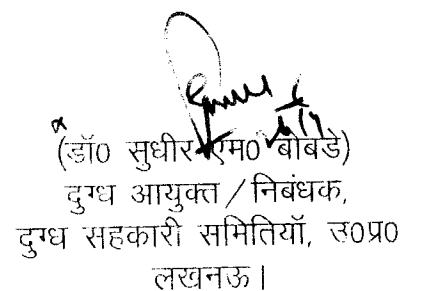 (डॉ0 सुधीर एम0 बोबडे)
दुग्ध आयुक्त / निबंधक,
दुग्ध सहकारी समितियॉ, उ0प्र0
लखनऊ।